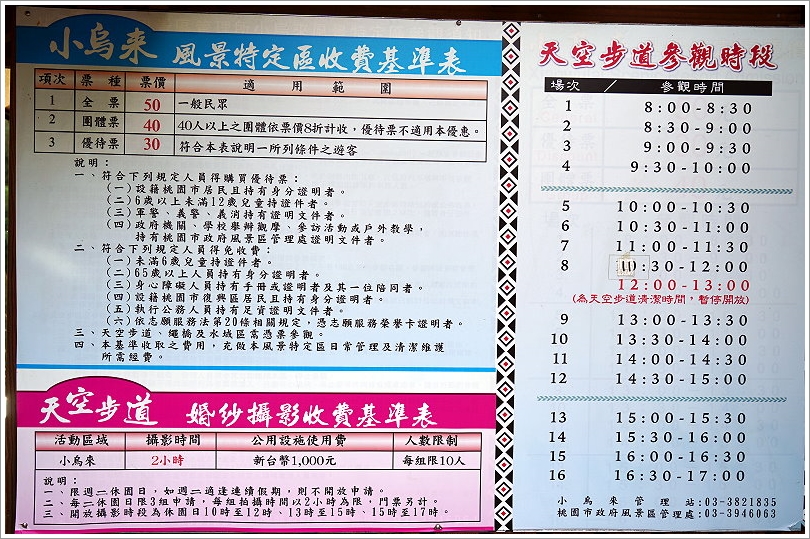 小烏來 風景特定區收費基準表
項次 票種 票價 適用範圍
1 全票 50 一般民眾
2 團體票 40 40人以上之團體依票價8折計收，優待票不適用本優惠。
3 優待票 30 符合本表說明一所列條件之遊客
說明：
一、符合下列規定人員得購買優待票：
(一)設籍桃園市居民且持有身分證明者。
(二)6歲以上未滿12歲兒童持證件者。
(三)軍警、義警、義消持有證明文件者。
(四)政府機關、學校舉辦觀摩、參訪活動或戶外教學，
持有桃園市政府風景區管理處證明文件者。
二、符合下列規定人員得免收費：
(一)未滿6歲兒童持證件者。
(二)65歲以上人員持有身分證明者。
(三)身心障礙人員持有手冊或證明者及其一位陪同者。
(四)設籍桃園市復興區居民且持有身分證明者。
(五)執行公務人員持有足資證明文件者。
(六)依志願服務法第20條相關規定，憑志願服務榮譽卡證明者。
三、天空步道、繩橋及水域區需憑票參觀。
四、本基準收取之費用，充做本風景特定區日常管理及清潔維護
所需經費。
天空步道 婚紗攝影收費基準表
活動區域 攝影時間 公用設施使用費 人數限制
小烏來 2小時 新台幣1,000元 每組限10人
說明：
一、限週二休園日，如週二適逢連續假期，則不開放申請。
二、每二休園日限3組申請，每組拍攝時間以2小時為限，門票另計。
三、開放攝影時段為休園日10時至12時、13時至15時、15時至17時。
天空步道參觀時段
場次 ／ 參觀時間
1 8:00-8:30
2 8:30-9:00
3 9:00-9:30
4 9:30-10:00
5 10:00-10:30
6 10:30-11:00
7 11:00-11:30
8 10:30-12:00
12:00-13:00
(為天空步道清潔時間，暫停開放)
9 13:00-13:30
10 13:30-14:00
11 14:00-14:30
12 14:30-15:00
13 15:00-15:30
14 15:30-16:00
15 16:00-16:30
16 16:30-17:00
小烏來管理站:03-3821835
桃園市政府風景區管理處:03-3946063